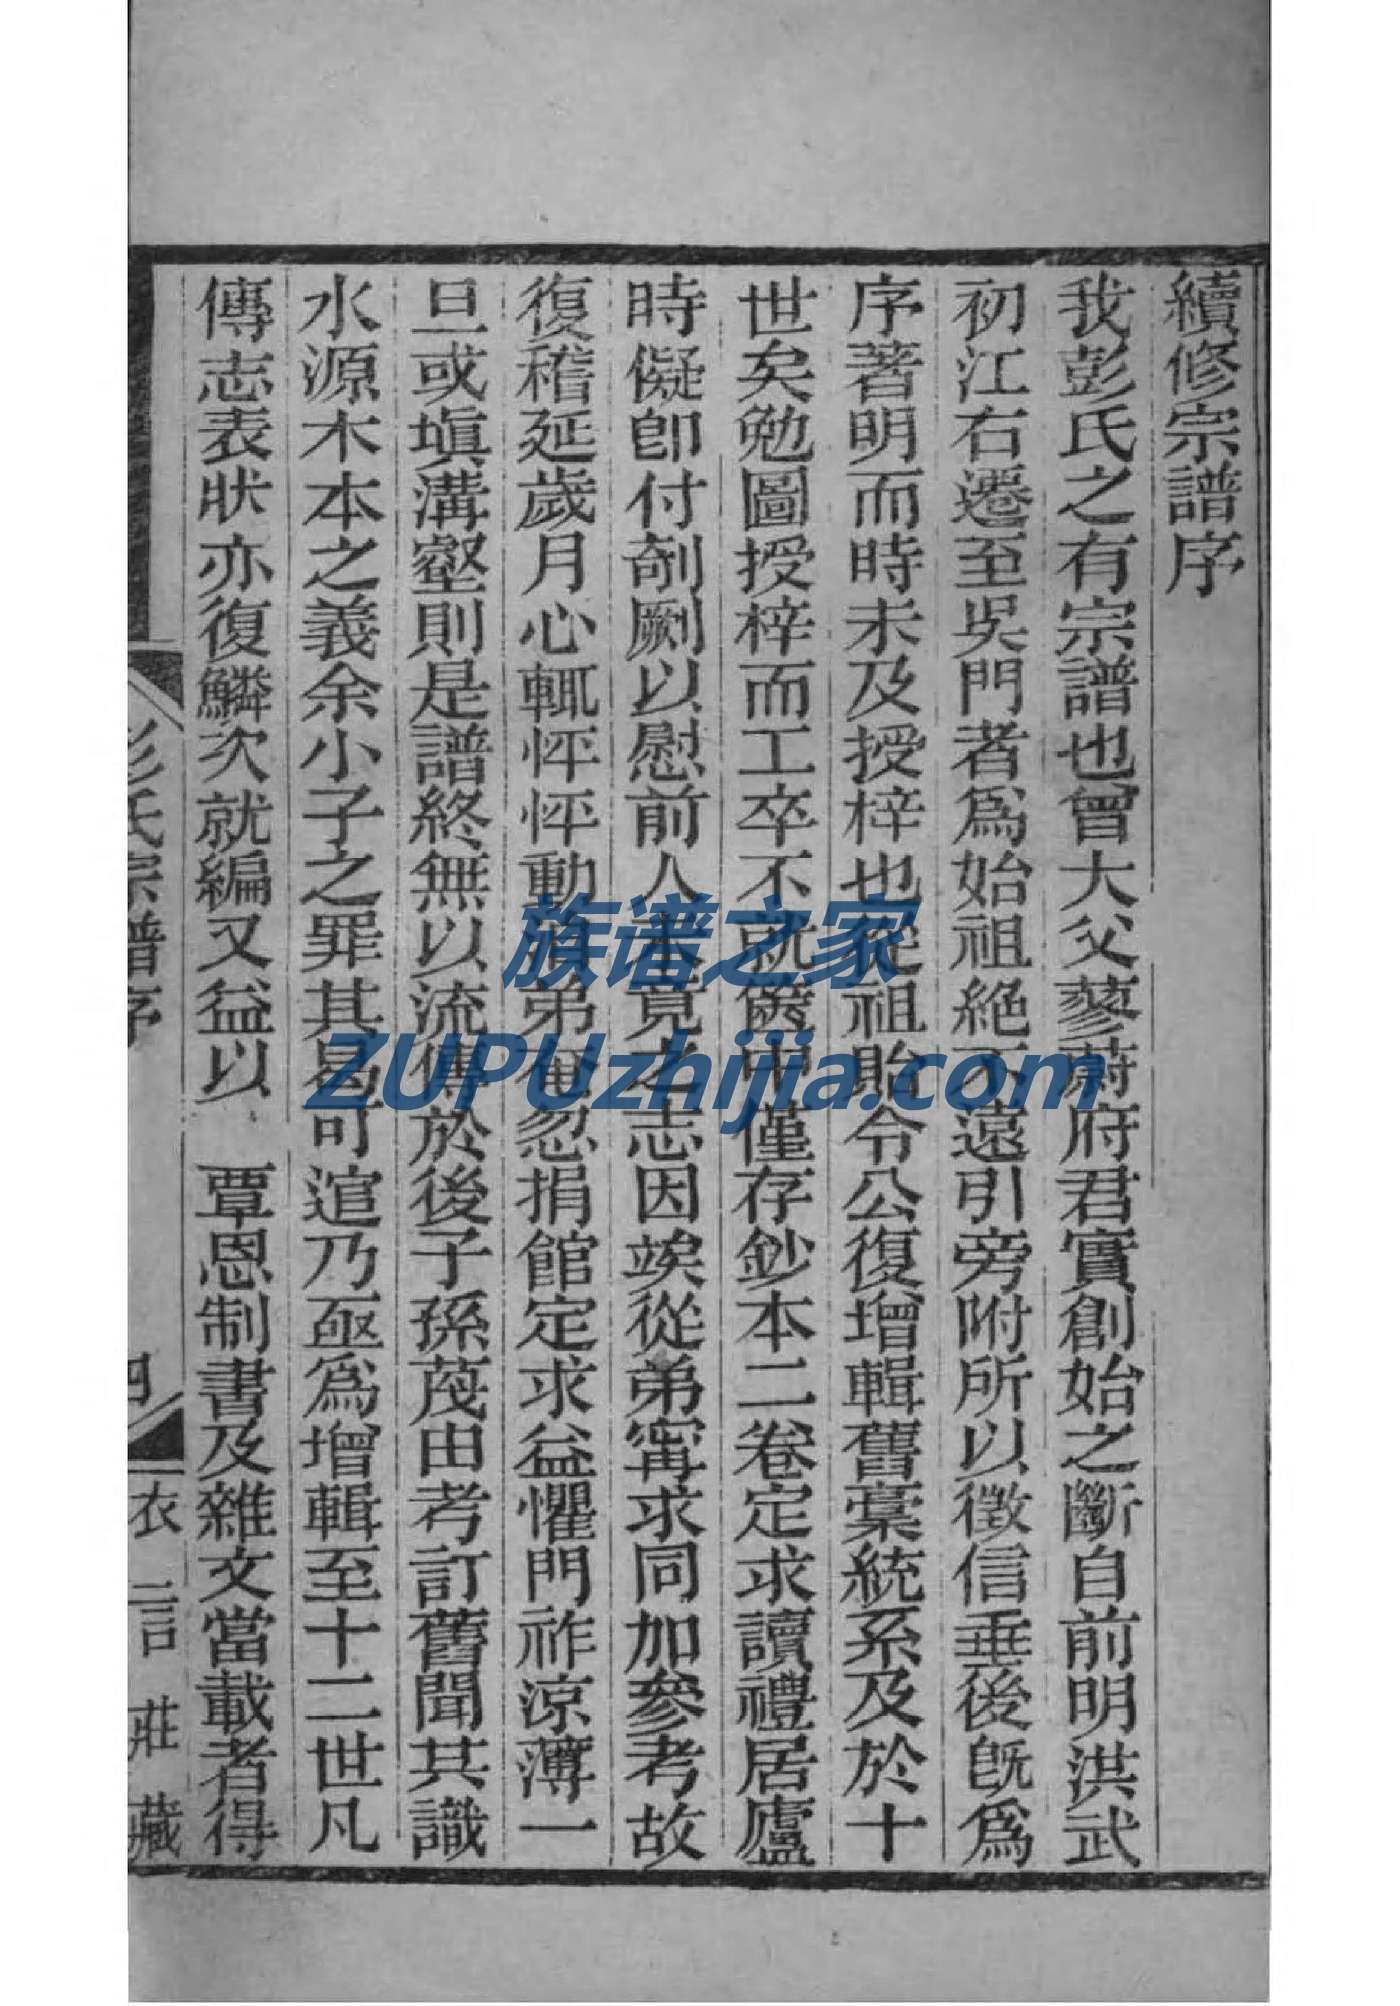 續修宗譜序
我彭氏之有宗譜也曾大父蓼蔚府君實創始之斷自前明洪武
初江右遷至吳門者爲始祖絶不遠引旁附所以徵信垂後旣爲
序著明而時未及授梓也從祖貽令公復增輯舊稾統系及於十
世矣勉圖授梓而工卒不就篋中僅存鈔本二卷定求讀禮居廬
時儗卽付剞劂以慰前人未竟之志因竢從弟寗求同加參考故
復稽延歲月心輒怦怦動前弟奄忽捐館定求益懼門祚凉薄一
旦或塡溝壑則是譜終無以流傳於後子孫茂由考訂舊聞其識
水源木本之義余小子之罪其曷可逭乃亟爲增輯至十二世凡
傳志表狀亦復鱗次就編又益以 覃恩制書及雜文當載者得
彭氏宗譜序 四 衣言莊藏
族谱之家
ZUPUzhijia.com